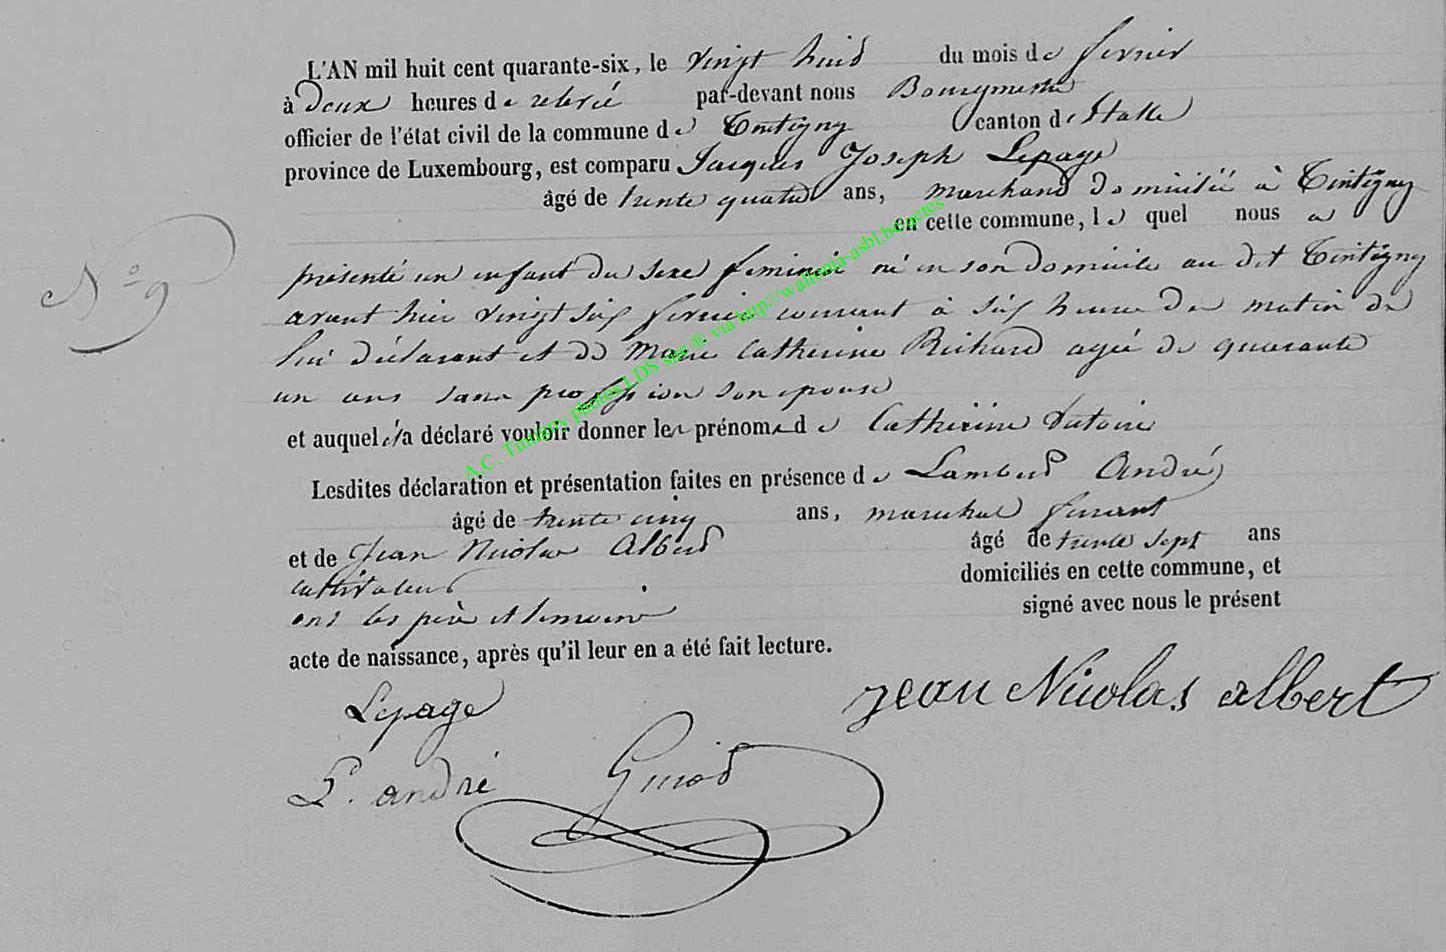 L'AN mil huit cent quarante-six, le vingt huit du mois de fevrier
à deux heures de relevée par-devant nous Bourgmestre
officier de l'état civil de la commune de Tintigny canton d'Etalle
province de Luxembourg, est comparu Jacques Joseph Lepage
âgé de trente quatre ans, marchand domicilié à Tintigny
en cette commune, le quel nous a
N° 9
présenté un enfant du sexe feminin né en son domicile au dit Tintigny
avant hier vingt six fevrier courant à six heure du matin de
lui déclarant et de Marie Catherine Richard agée de quarante
un ans sans profession son epouse
et auquel il a déclaré vouloir donner les prénoms de Catherine Victoire
Lesdites déclaration et présentation faites en présence de Lambert André
âgé de trente cinq ans, marechal ferrant
et de Jean Nicolas Albert âgé de trente sept ans
cultivateur domiciliés en cette commune, et
ont les père et temoins signé avec nous le présent
acte de naissance, après qu'il leur en a été fait lecture.
Lepage jean Nicolas albert
L. andré
A.C. Tintigny photos LDS site ® via http://wallonia-asbl.be/actes